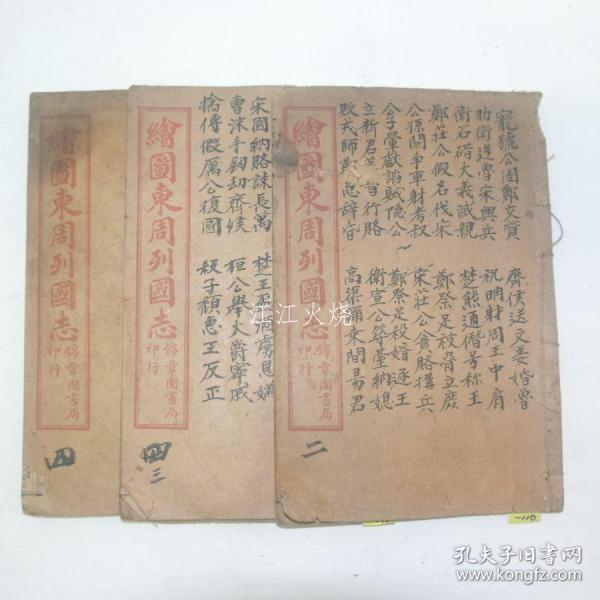 寵虢公周鄭交質
助衛逆魯宋興兵
衛石碏大義滅親
鄭莊公假名伐宋
公孫閼爭車射考叔
公子翬獻諂賊隱公
立新君 行賂
敗戎師鄭忽辭昏
齊侯送文姜婚魯
祝聃射周王中肩
楚熊通僭号称王
鄭祭足被脅立庶
宋莊公貪賂搆兵
鄭祭足殺婿逐主
衛宣公築臺納媳
高渠彌乘間易君
繪圖東周列國志
錦章圖書局
印行
二
宋國納賂誅長萬
曹沫手劍劫齊侯
擒傅假厲公復國
楚王
桓公舉火爵寧戚
殺子頹惠王反正
繪圖東周列國志
錦章圖書局
印行
四
三
繪圖東周列國志
錦章圖書局
印行
四
江江火烧
-110
孔夫子旧书网
www.kongfz.com